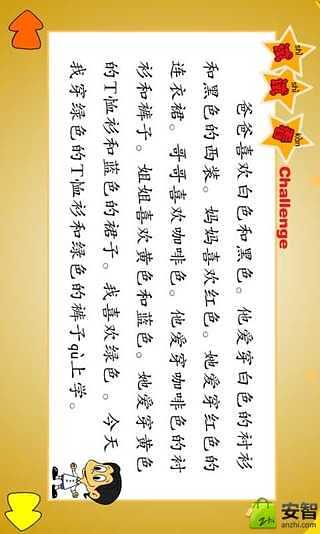 shì shi kàn
试试看
Challenge
爸爸喜欢白色和黑色。他爱穿白色的衬衫
和黑色的西装。妈妈喜欢红色。她爱穿红色的
连衣裙。哥哥喜欢咖啡色。他爱穿咖啡色的衬
衫和裤子。姐姐喜欢黄色和蓝色。她爱穿黄色
的T恤衫和蓝色的裙子。我喜欢绿色。今天
我穿绿色的T恤衫和绿色的裤子qù上学。
安智
anzhi.com
zhi